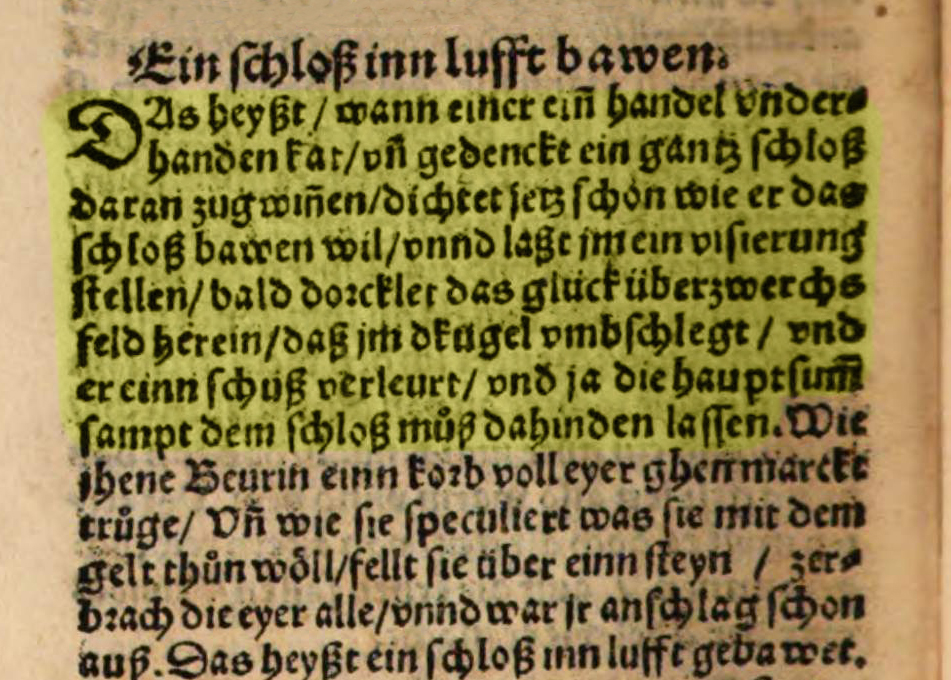 Ein schloß inn lufft bawen.
DAs heyßt / wann einer ein̄ handel vnder⸗
handen hat/vn̄ gedenckt ein gantz schloß
daran zug win̄en/dichtet jetz schon wie er das
schloß bawen wil/vnnd laßt jm ein visierung
stellen/ bald dorcklet das glück überzwerchs
feld herein/daß jm dkugel vmbschlegt / vnd
er einn schuß verleurt/ vnd ja die hauptsum̄
sampt dem schloß můß dahinden lassen. Wie
jhene Beurin einn korb voll eyer ghen marckt
trůge/ Vn̄ wie sie speculiert was sie mit dem
gelt thůn wöll/fellt sie über einn steyn / zer⸗
brach die eyer alle/vnnd war jr anschlag schon
auß. Das heyßt ein schloß inn lufft gebawet.